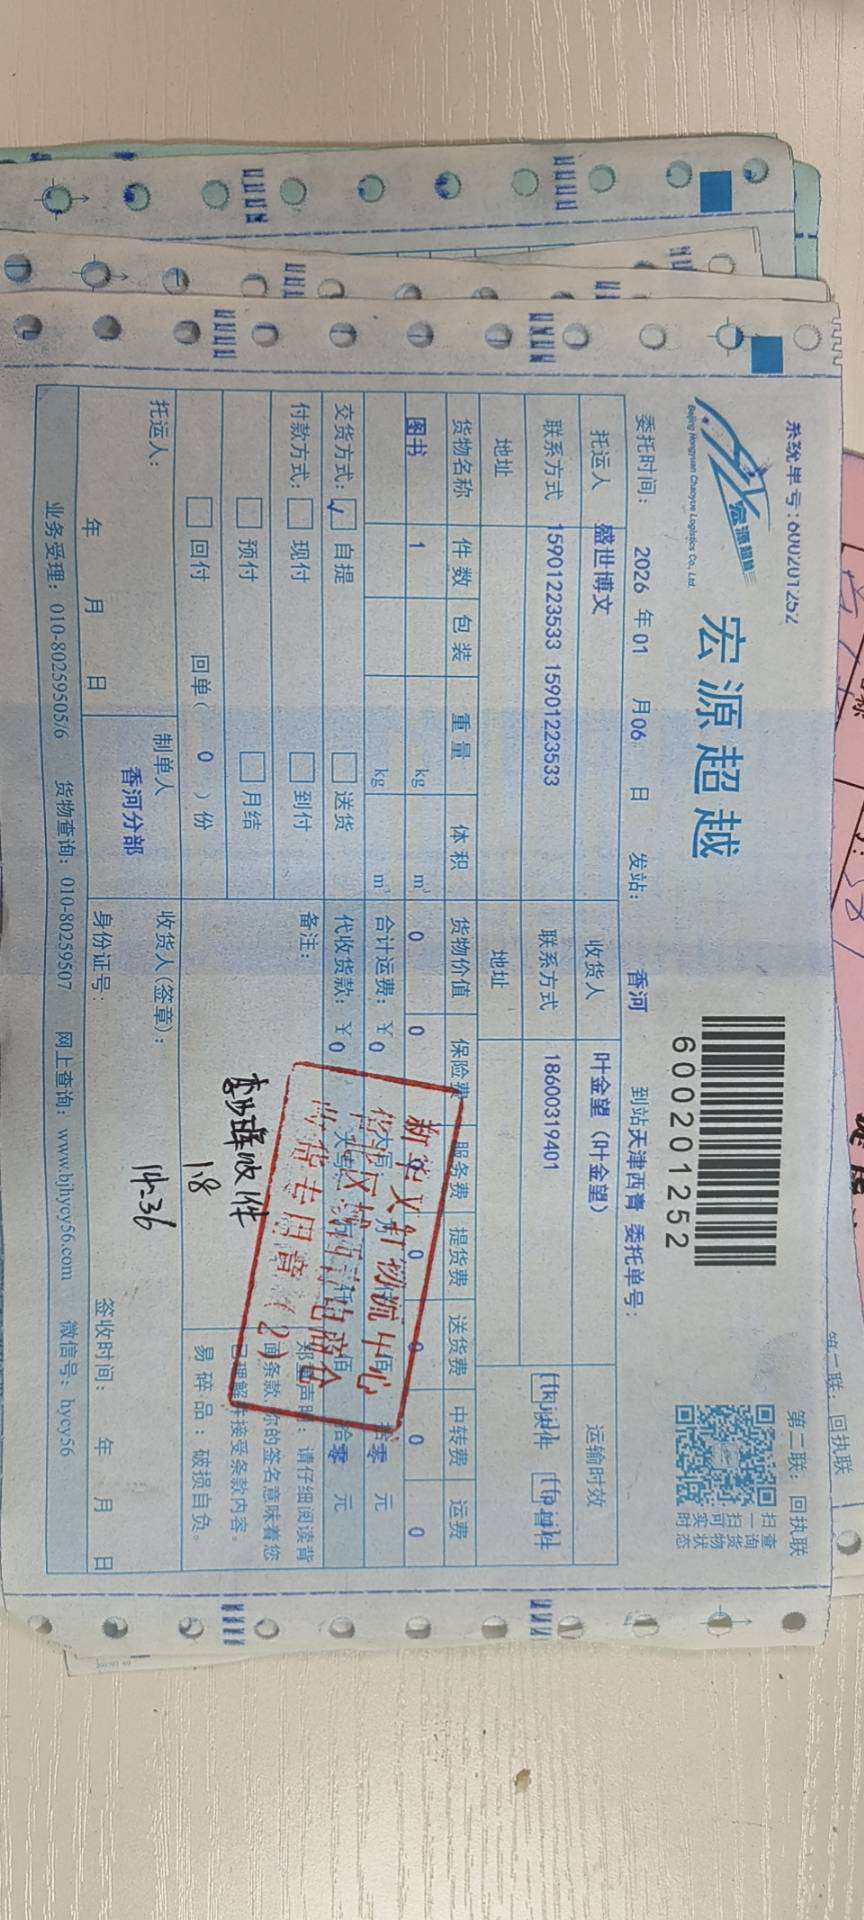 系统单号:600201252
第二联：回执联
宏源超越
Beijing Hongyuan Chaoyue Logistics Co., Ltd.
宏源超越
600201252
扫一扫可实时
查询货物状态
委托时间： 2026 年 01 月 06 日 发站： 香河 到站 天津西青 委托单号：
托运人 盛世博文 收货人 叶金望（叶金望） 运输时效
联系方式 15901223533 15901223533 联系方式 18600319401
地址 地址
货物名称 件数 包装 重量 体积 货物价值 保险费 服务费 提货费 送货费 中转费 运费
图书 1 kg m³ 0 0 0 0 0 0
kg m³ 合计运费：￥0 零 元
交货方式： ✓ 自提 送货 代收货款：￥0 拾零 元
付款方式： 现付 到付 备注：
预付 月结
回付 回单（ 0 ）份
郑重声明：请仔细阅读背
面条款，你的签名意味着您
已理解并接受条款内容。
易碎品：破损自负。
新华文轩物流中心
收货专用章（2）
收件
1.8
14-36
托运人： 制单人 收货人(签章)：
香河分部
年 月 日 身份证号： 签收时间： 年 月 日
业务受理：010-80259505/6 货物查询：010-80259507 网上查询：www.bjhycy56.com 微信号：hycy56
第二联：回执联